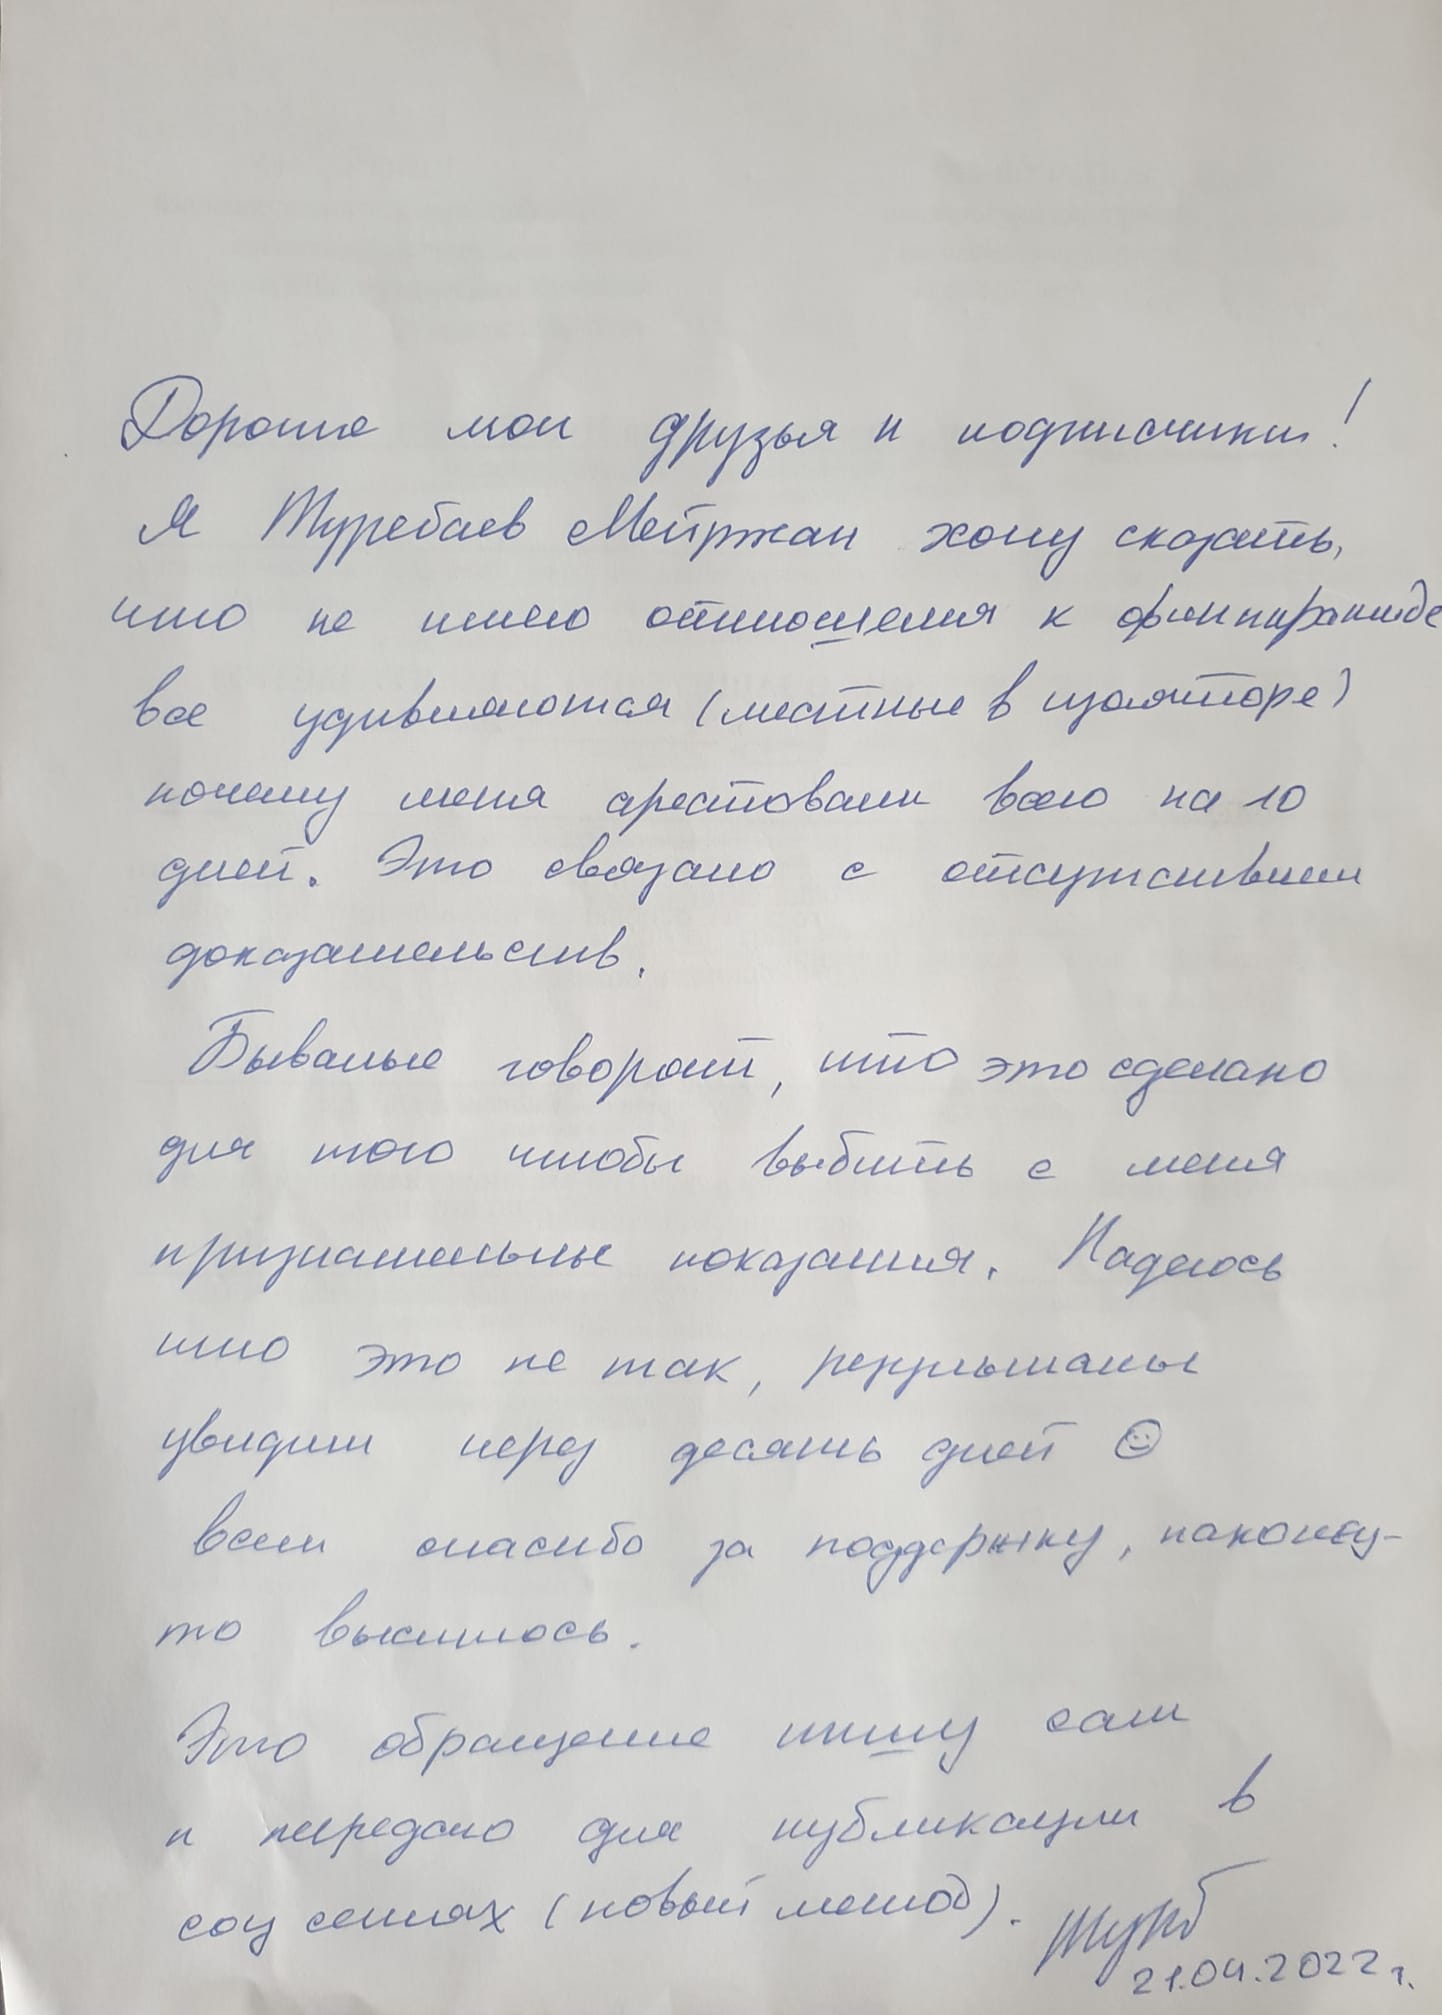 Дорогие мои друзья и подписчики!
Я Туребаев Мейржан хочу сказать,
что не имею отношения к финпирамиде
все удивляются (местные в изоляторе)
почему меня арестовали всего на 10
дней. Это связано с отсутствием
доказательств.
Бывалые говорят, что это сделано
для того чтобы выбить с меня
признательные показания. Надеюсь
что это не так, результаты
увидим через десять дней ☺
всем спасибо за поддержку, наконец-
то высплюсь.
Это обращение пишу сам
и передаю для публикации в
соц сетях (новый метод).
21.04.2022 г.